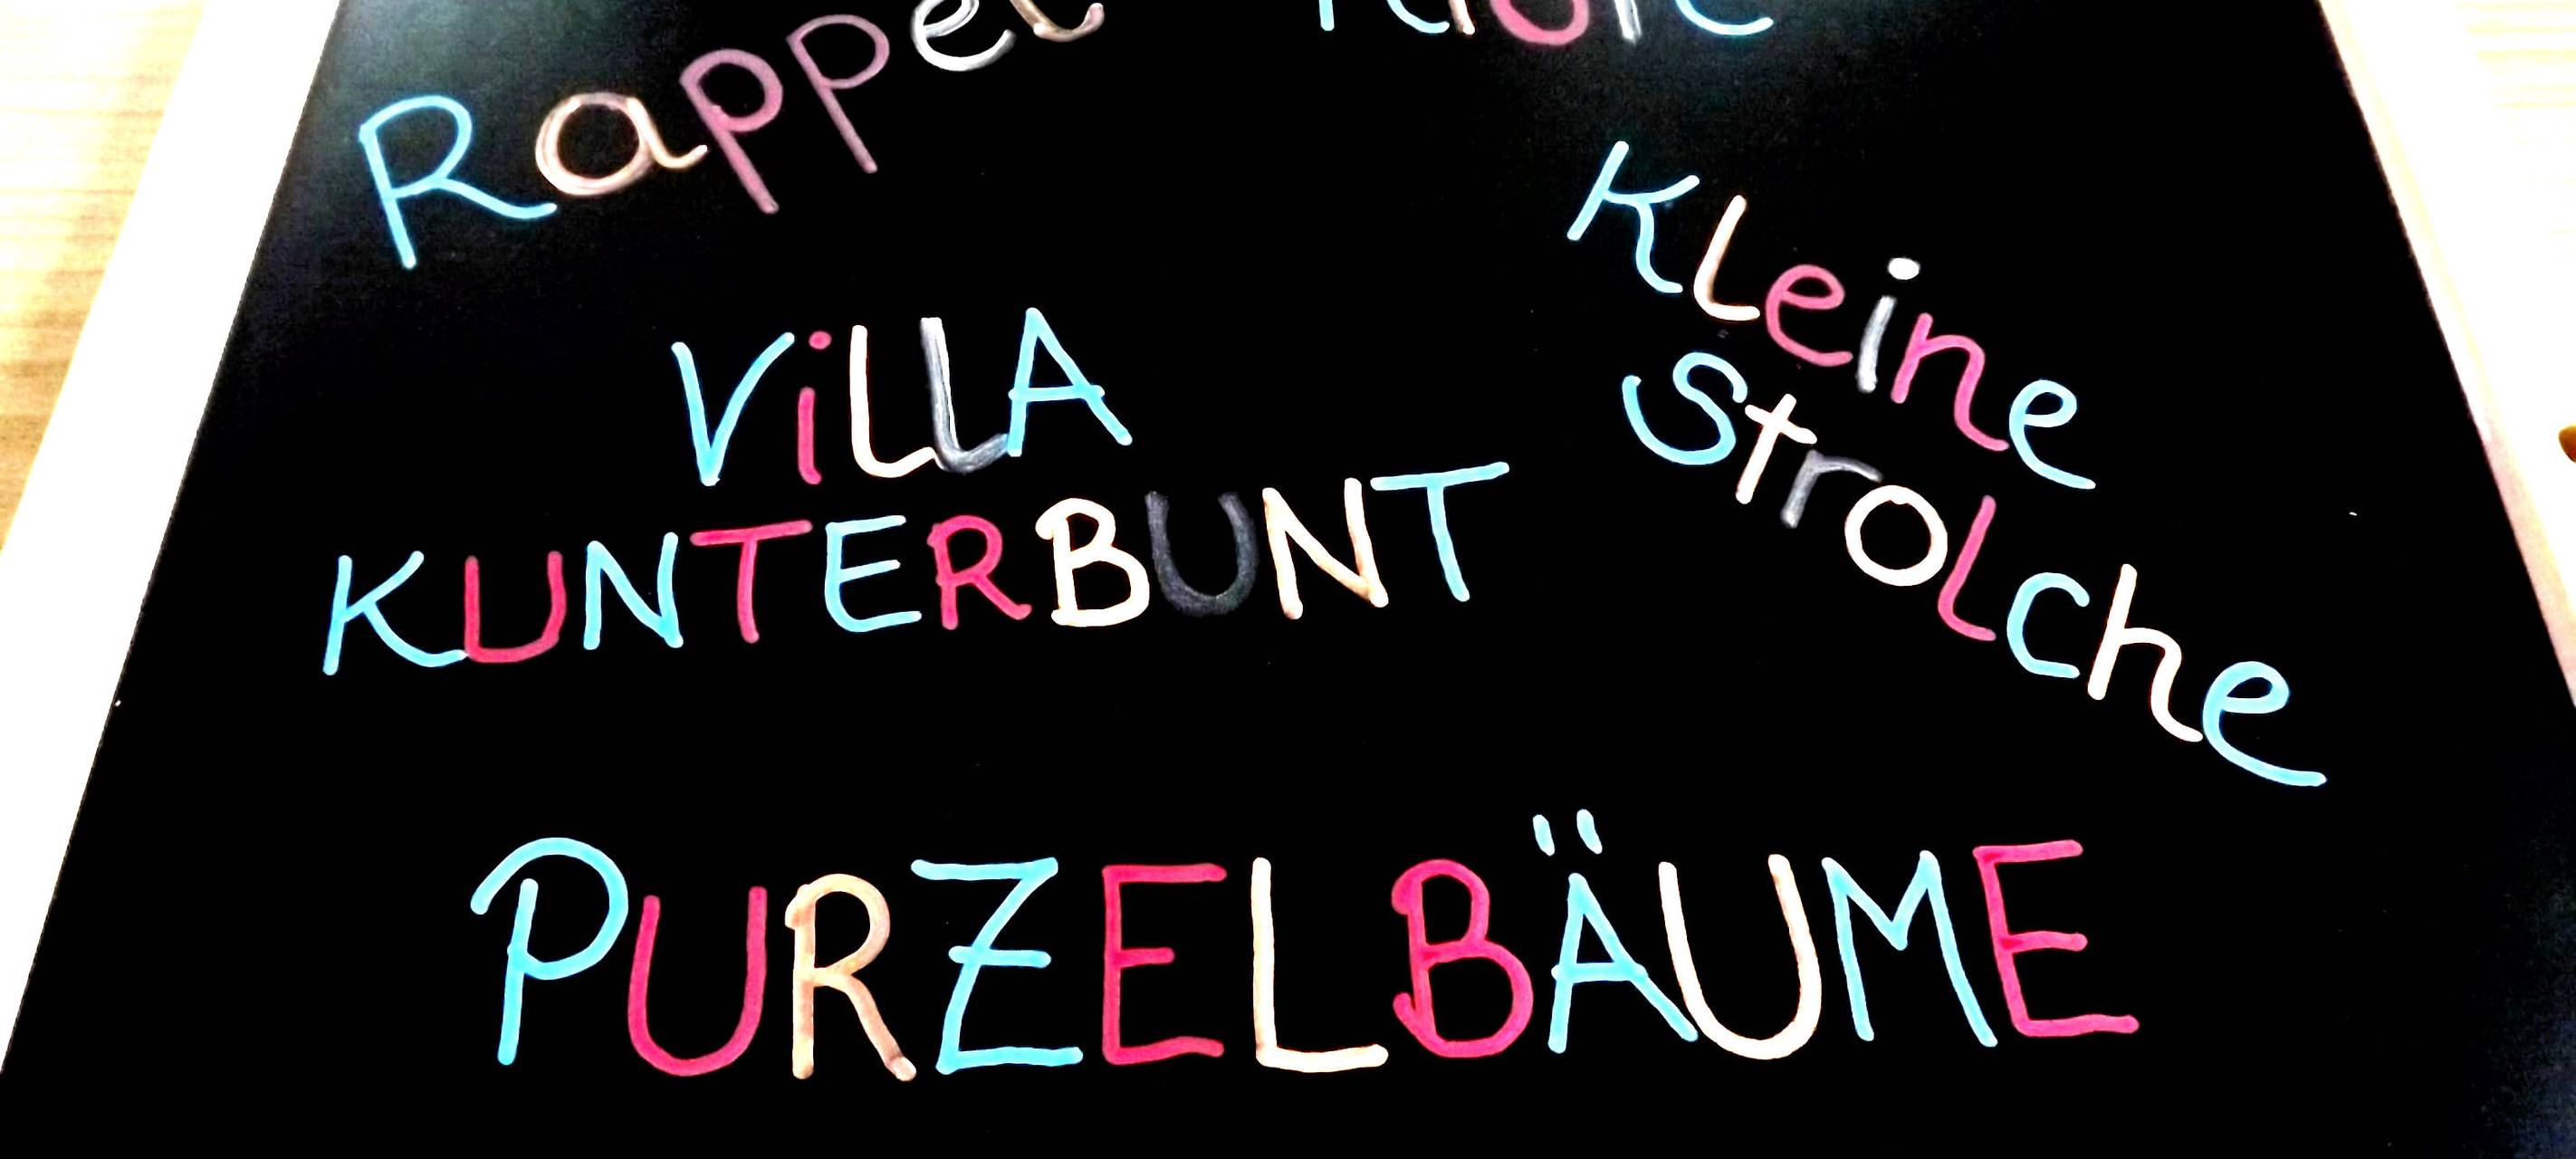 Rappel
ViLLA
KUNTERBUNT
Kleine
Strolche
PURZELBÄUME